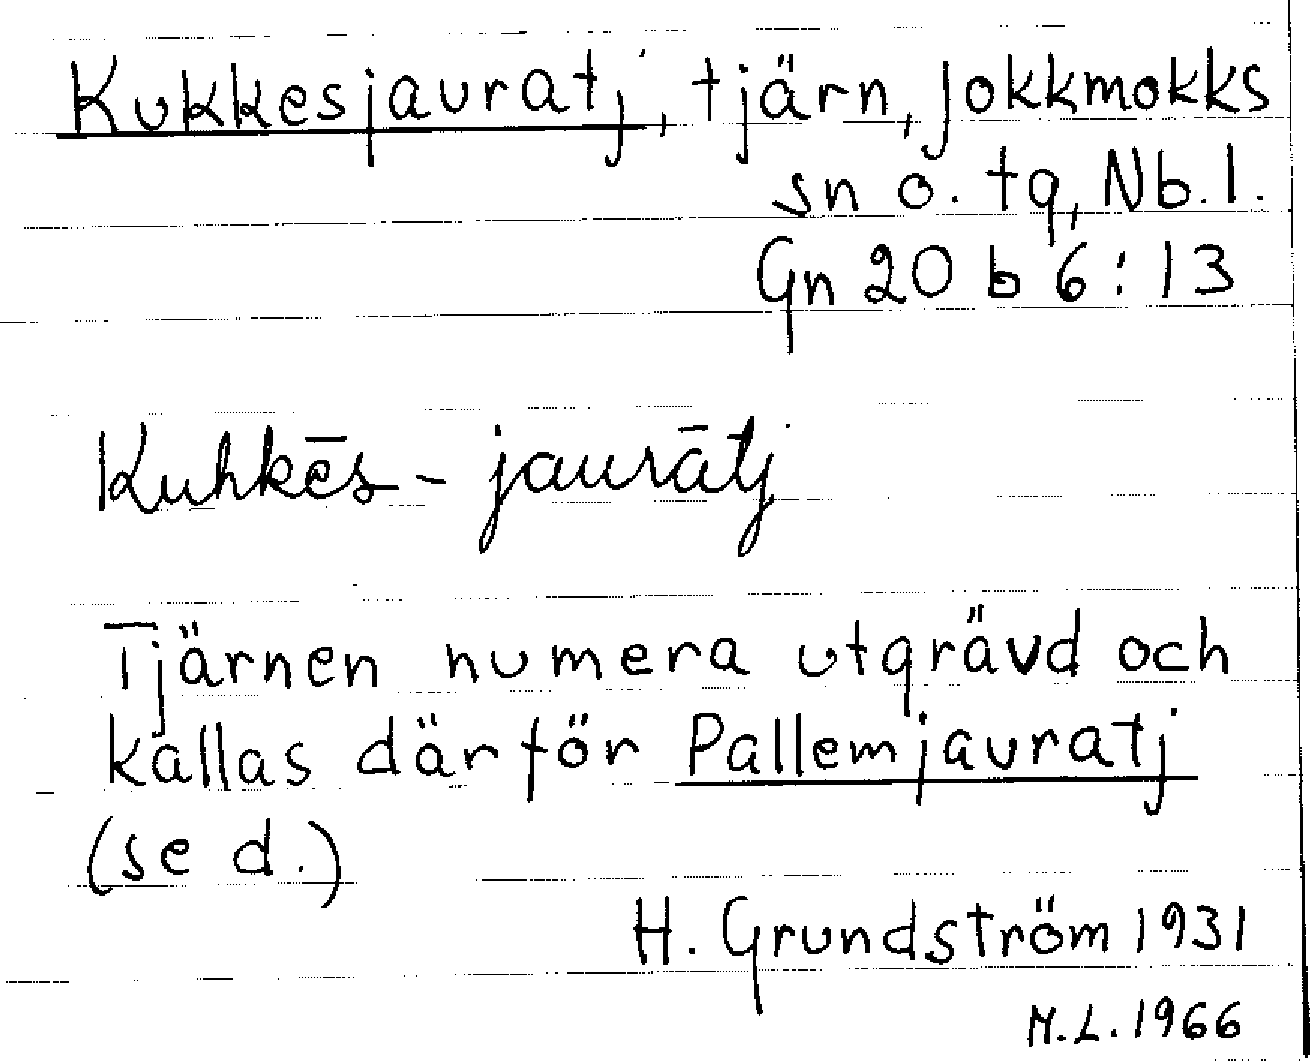 Kukkesjauratj, tjärn, Jokkmokks
sn o. tg, Nb. l.
Gn 20 b 6:13
Kuhkēs-jaurātj
Tjärnen numera utgrävd och
kallas därför Pallemjauratj
(se d.)
H. Grundström 1931
M.L. 1966